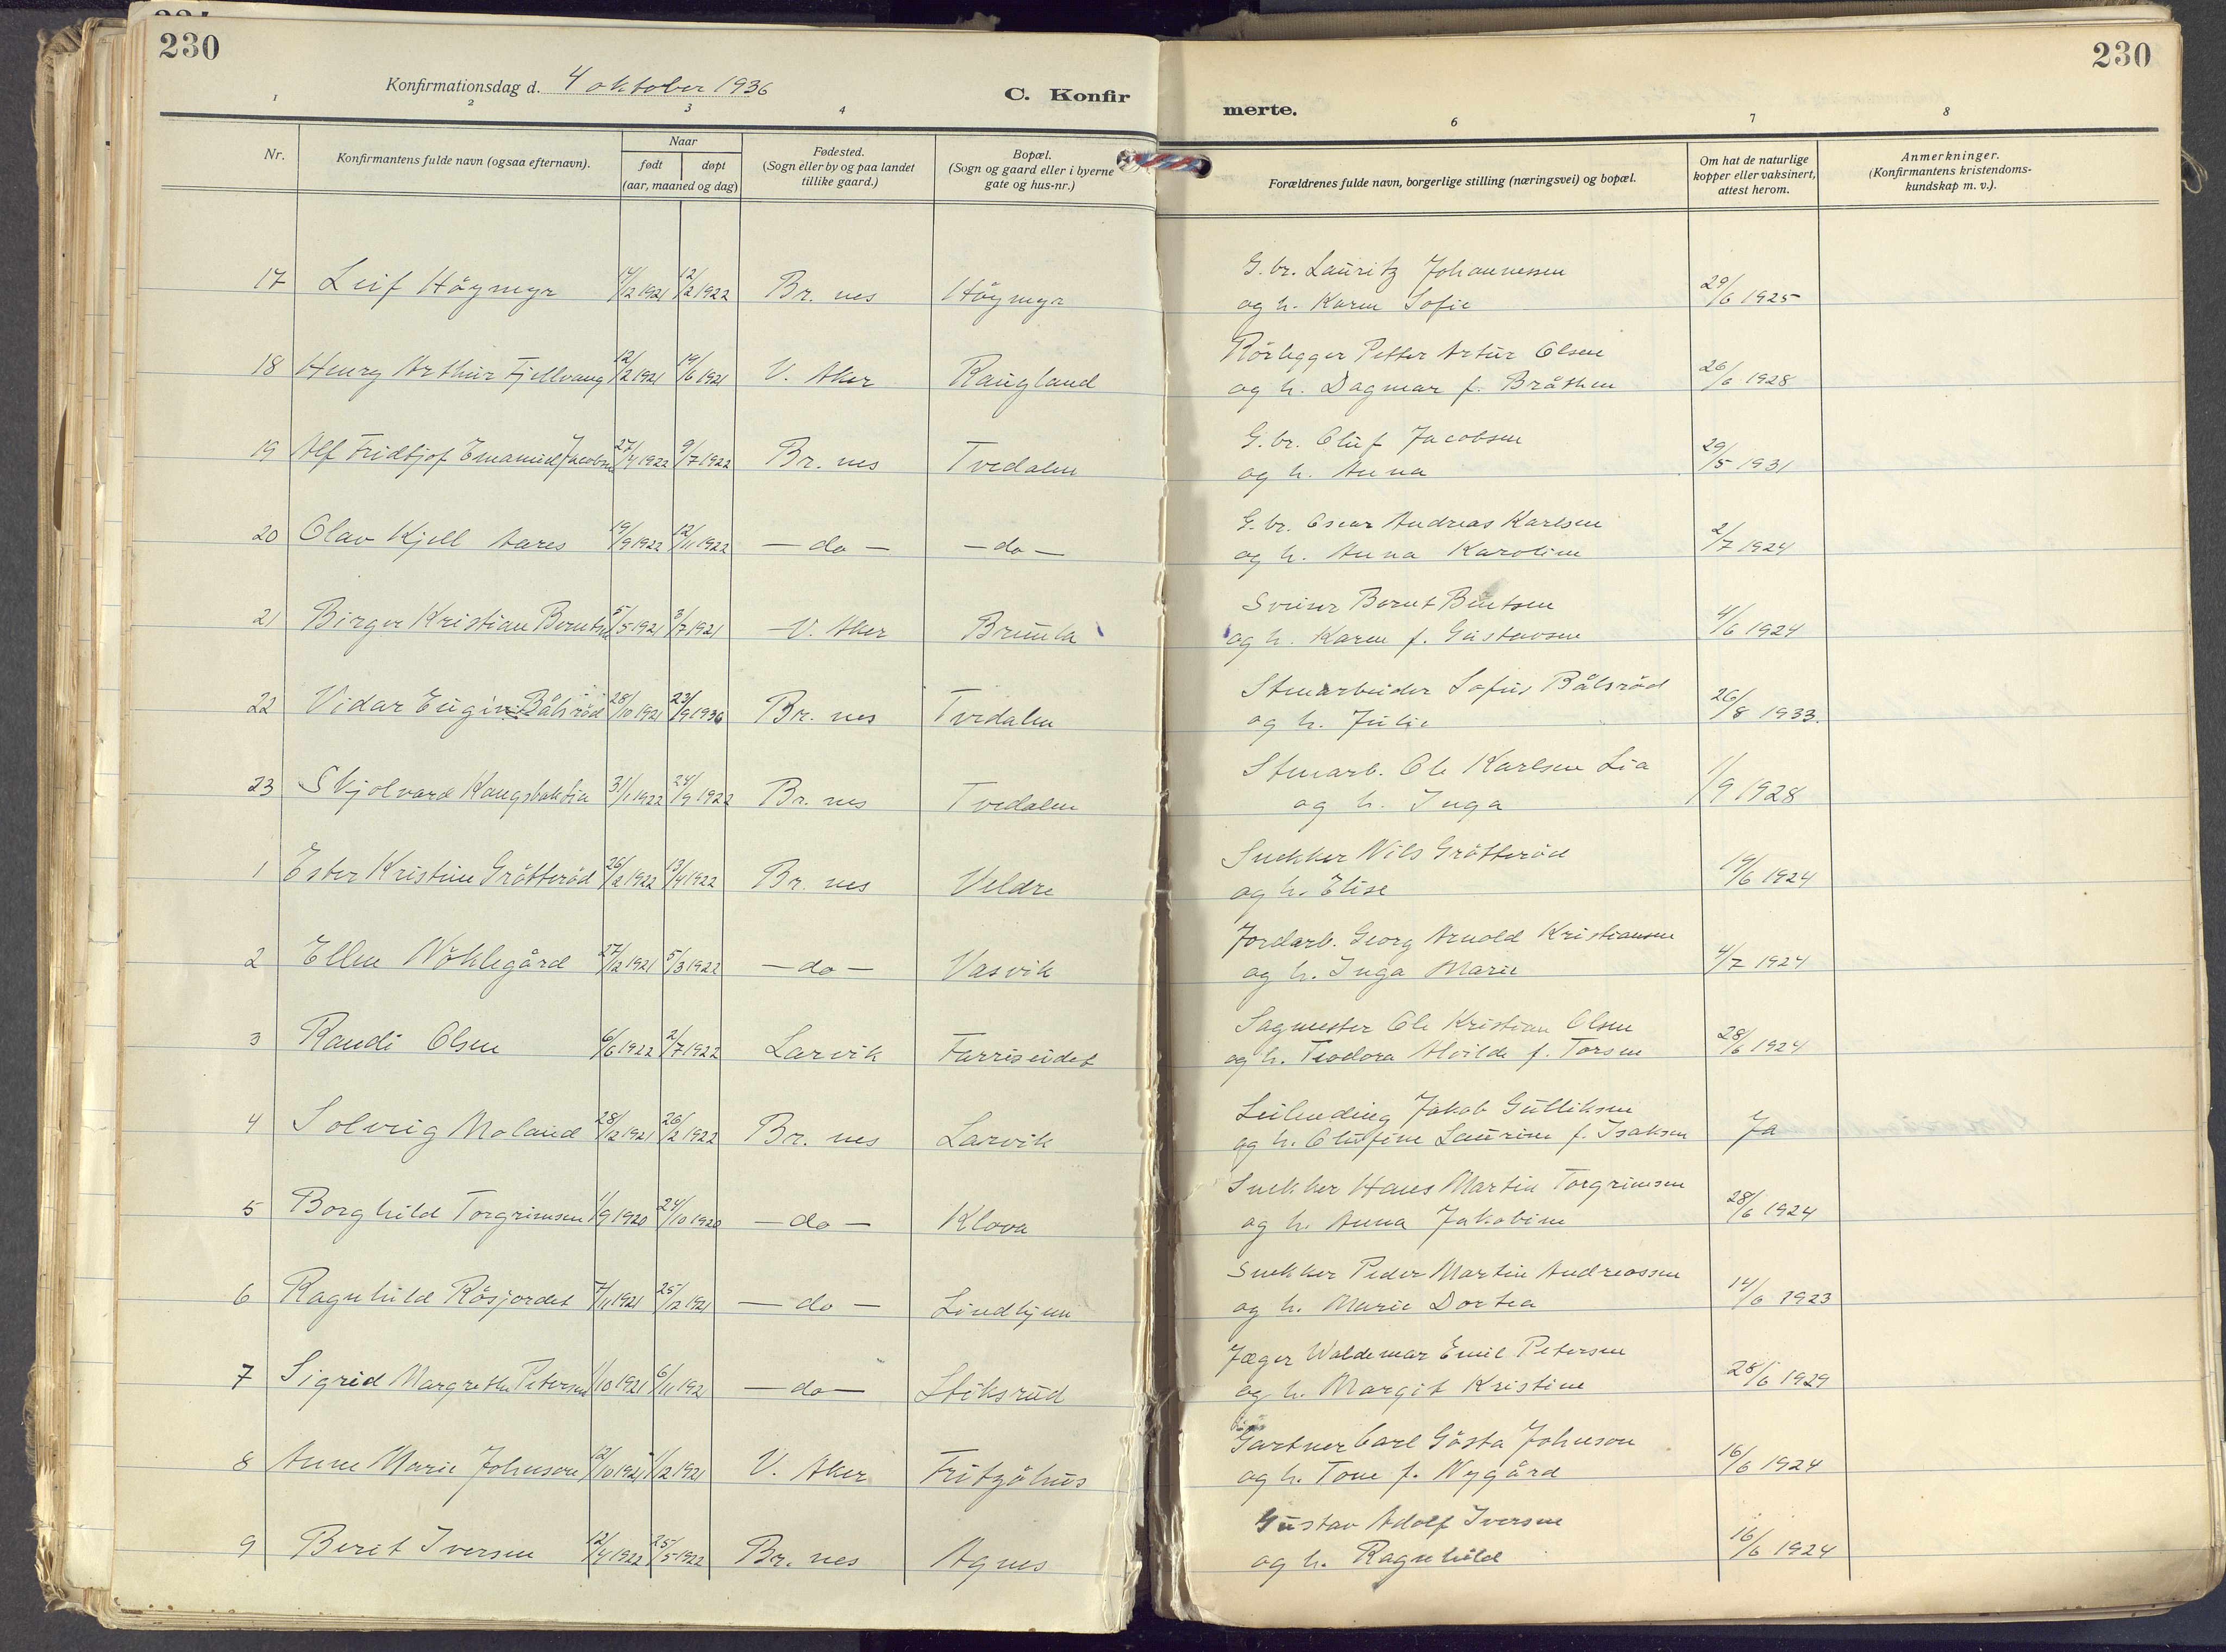 230
230
Konfirmationsdag d. 4 oktober 1936
C. Konfir
merte.
1 2 3 4 6 7 8
Nr.
Konfirmantens fulde navn (ogsaa efternavn).
Naar
født døpt
(aar, maaned og dag)
Fødested.
(Sogn eller by og paa landet
tillike gaard.)
Bopæl.
(Sogn og gaard eller i byerne
gate og hus-nr.)
Forældrenes fulde navn, borgerlige stilling (næringsvei) og bopæl.
Om hat de naturlige
kopper eller vaksinert,
attest herom.
Anmerkninger.
(Konfirmantens kristendoms-
kundskap m. v.).
G. br. Lauritz Johannessen
17 Leif Högmyr 17/12 1921 12/2 1922 Br. nes Högmyr og h. Karen Sofie 29/6 1925
Rörlegger Petter Artur Olsen
18 Henry Arthur Fjellvang 12/2 1921 19/6 1921 V. Aker Raugland og h. Dagmar f. Bråthen 26/6 1928
G. br. Oluf Jacobsen
19 Alf Fridtjof Emanuel Jacobsen 27/4 1922 9/7 1922 Br. nes Tvedalen og h. Anna 29/5 1931
G. br. Oscar Andreas Karlsen
20 Olav Kjell Aares 19/9 1922 12/11 1922 — do — — do — og h. Anna Karoline 2/7 1924
Sveiser Bernt Bentsen
21 Birger Kristian Berntsen 5/5 1921 3/7 1921 V. Aker Brunla og h. Karen f. Gustavsen 4/6 1924
Stenarbeider Sofus Bålsröd
22 Vidar Eugin Bålsröd 28/10 1921 23/9 1936 Br. nes Tvedalen og h. Julie 26/8 1933.
Stenarb. Ole Karlsen Lia
23 Skjolvard Kaugsbakken 31/1 1922 24/9 1922 Br. nes Tvedalen og h. Inga 1/9 1928
Snekker Nils Grötteröd
1 Ester Kristine Grötteröd 26/2 1922 13/4 1922 Br. nes Veldre og h. Elise 19/6 1924
Jordarb. Georg Arnold Kristiansen
2 Ellen Nöklegård 27/12 1921 5/3 1922 — do — Vasvik og h. Inga Marie 4/7 1924
Sagmester Ole Kristian Olsen
3 Randi Olsen 6/6 1922 2/7 1922 Larvik Farriseidet og h. Teodora Alvilde f. Torsen 28/6 1924
Leilending Jakob Gulliksen
4 Solveig Moland 28/12 1921 26/2 1922 Br. nes Larvik og h. Olufine Laurine f. Isaksen Ja
Snekker Hans Martin Torgrimsen
5 Borghild Torgrimsen 1/9 1920 24/10 1920 — do — Klova og h. Anna Jakobine 28/6 1924
Snekker Peder Martin Andreassen
6 Ragnhild Råsjordet 7/11 1921 25/12 1921 — do — Lindhjem og h. Marie Dortea 14/6 1923
Jæger Waldemar Emil Petersen
7 Sigrid Margrethe Petersen 1/10 1921 6/11 192 — do — Stiksrud og h. Margit Kristine 28/6 1929
Gartner Carl Gösta Johnson
8 Anne Marie Johnson 12/10 1921 1/12 1921 V. Aker Fritzöhus og h. Tone f. Nygård 16/6 1924
Gustav Adolf Iversen
9 Berit Iversen 12/4 1922 25/5 1922 Br. nes Agnes og h. Ragnhild 16/6 1924